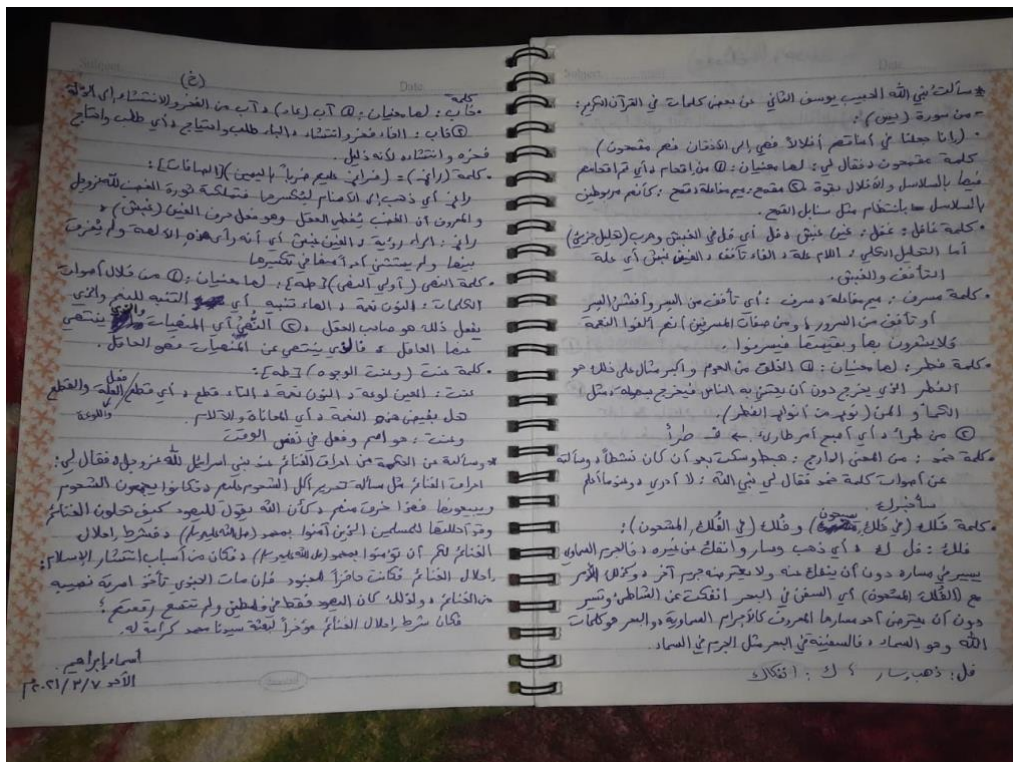 * سألتُ نبي الله الحبيب يوسف الثاني عن بعض كلمات في القرآن الكريم:
- من سورة (يس):
• (إنا جعلنا في أعناقهم أغلالاً فهي إلى الأذقان فهم مقمحون)
كلمة مقمحون فقال لي: لها معنيان: ① من اقتحام أي تم اقتحامهم
فيها بالسلاسل والأغلال بقوة ② مقمح: ميم مفاعلة قمح: كأنهم مربوطين
بالسلاسل بانتظام مثل سنابل القمح.
• كلمة غافل: غفل: غين غبش فل أي فل في الغبش وهرب (تحليل جزيئي)
أما التحليل الكلي: اللام علة الفاء تأفف الغين غبش أي علة
التأفف والغبش.
• كلمة مسرف: ميم مفاعلة سرف: أي تأفف من اليسر وأفشى السر
أو تأفف من السرور (ومن صفات المسرفين) نعم ألفوا النعمة
فلا يشعرون بها وبقيمتها فيسرفوا.
• كلمة فطر: لها معنيان: ① الفلق من العدم وأكبر مثال على ذلك هو
الفطر الذي يخرج دون أن يعتني به الناس فيخرج بسهولة مثل
الكمأ والمن (نوعين من أنواع الفطر).
② من طرأ أي أصبح أمر طارئ ← ف طرأ
• كلمة خمد: من المعنى الدارج: هبط وسكت بعد أن كان نشطاً وسألته
عن أصوات كلمة خمد فقال لي نبي الله: لا أدري وعندما أعلم
سأخبرك.
• كلمة فلك (في فلك يسبحون) و فلك (في الفلك المشحون):
فلك: فل ك أي ذهب وسار وانفك عن غيره فالجرم السماوي
يسير في مساره دون أن ينفك عنه ولا يعترضه جرم آخر وكذلك الأمر
مع (الفلك المشحون) أي السفن في البحر انفكت عن الشاطئ وتسير
دون أن يعترض أحد مسارها المعروف كالأجرام السماوية والبحر هو كلمات
الله وهو السماء فالسفينة في البحر مثل الجرم في السماء.
فل: ذهب، سار ك: انفكاك
(خ)
• كلمة خاب: لها معنيان: ① آب (عاد) آب من الفخر والانتشاء إلى الذلة
② خاب: الخاء فخر وانتشاء الباء طلب واحتياج أي طلب واحتاج
فخره وانتشاءه لأنه ذليل.
• كلمة (راغ) = (فراغ عليهم ضرباً باليمين) [الصافات]:
راغ أي ذهب إلى الأصنام ليكسرها فتملكه ثورة الغضب لله عز وجل
والمعروف أن الغضب يُغطي العقل وهو فعل حرف الغين (غبش)
راغ: الراء رؤية الغين غبش أي أنه رأى هذه الآلهة ولم يُفرق
بينها ولم يستثني أحد أيضاً في تكسيرها
• كلمة النهى (أولي النهى) [طه]: لها معنيان: ① من خلال أصوات
الكلمات: النون نعمة الهاء تنبيه أي التنبه للنعم والذي
يفعل ذلك هو صاحب العقل ② النُهى أي المنهيات والذي ينتهي
عنها العاقل فالذي ينتهي عن المنهيات فهو العاقل.
• كلمة عنت (وعنت الوجوه) [طه]:
عنت: العين لوعة النون نعمة التاء قطع أي قطع فعل العلة والقطع في واللوعة
هل بغيض هذه النعمة أي المعاناة والآلام.
وعنت: هو اسم وفعل في نفس الوقت
* وسألته عن الحكمة من إحراق الغنائم عند بني إسرائيل لله عز وجل فقال لي:
إحراق الغنائم مثل مسألة تحريم أكل الشحوم عليهم فكانوا يجمعون الشحوم
ويبيعونها فهذا حرمت منهم كأن الله يقول لليهود كيف تحلون الغنائم
وقد أحللتها للمسلمين الذين آمنوا بمحمد (صلى الله عليه وسلم) فشرط إحلال
الغنائم لكم أن تؤمنوا بمحمد (صلى الله عليه وسلم) فكان من أسباب انتشار الإسلام:
إحلال الغنائم فكانت حافزاً للجنود فإن مات الجندي تأخذ أسرته نصيبه
من الغنائم ولذلك كان اليهود فقط في فلسطين ولم تتسع رقعتهم؛
فكان شرط إحلال الغنائم مؤخراً لبعثة سيدنا محمد كرامة له.
أسماء إبراهيم.
الأحد ٧/٣/٢٠٢١م